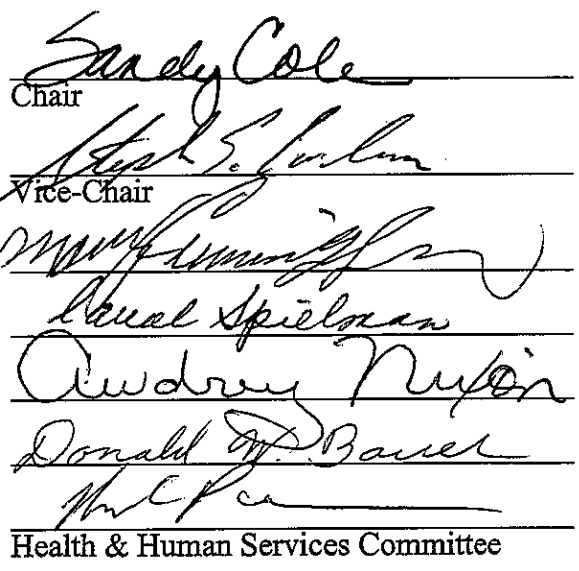 Sandy Cole
Chair
Steph S.
Vice-Chair
Mary Cunningham
Carol Spielman
Audrey Nixon
Donald W. Bauer
Health & Human Services Committee